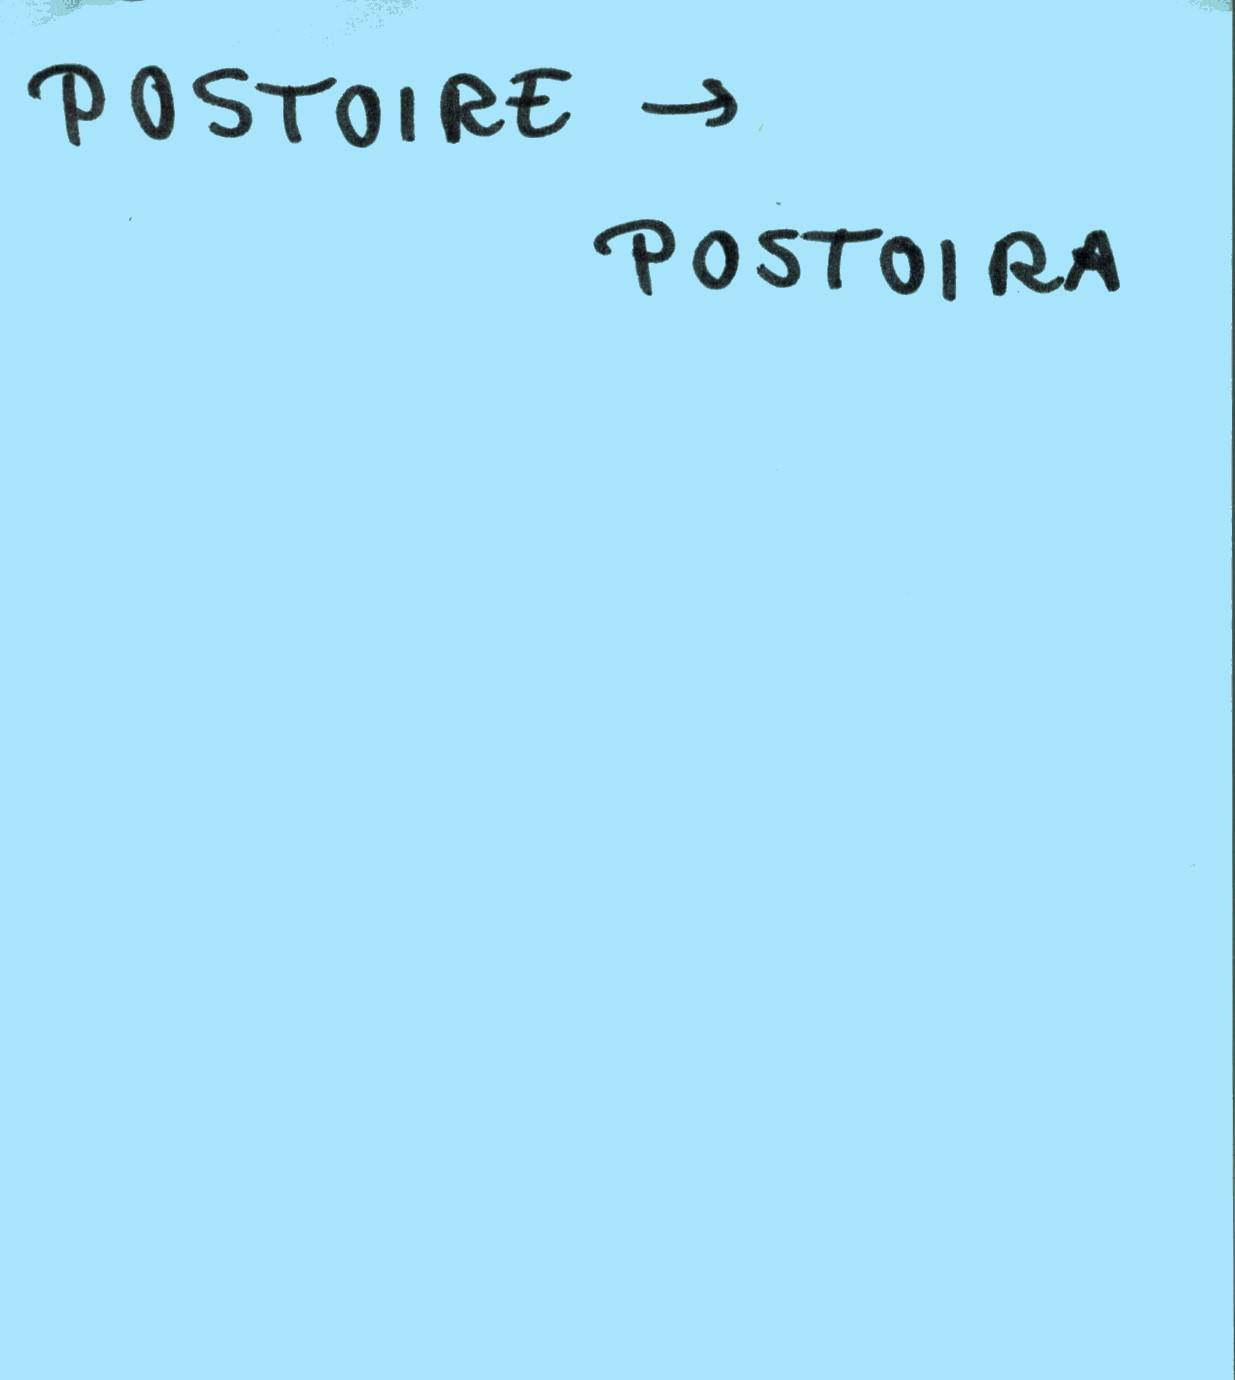 POSTOIRE →
POSTOIRA